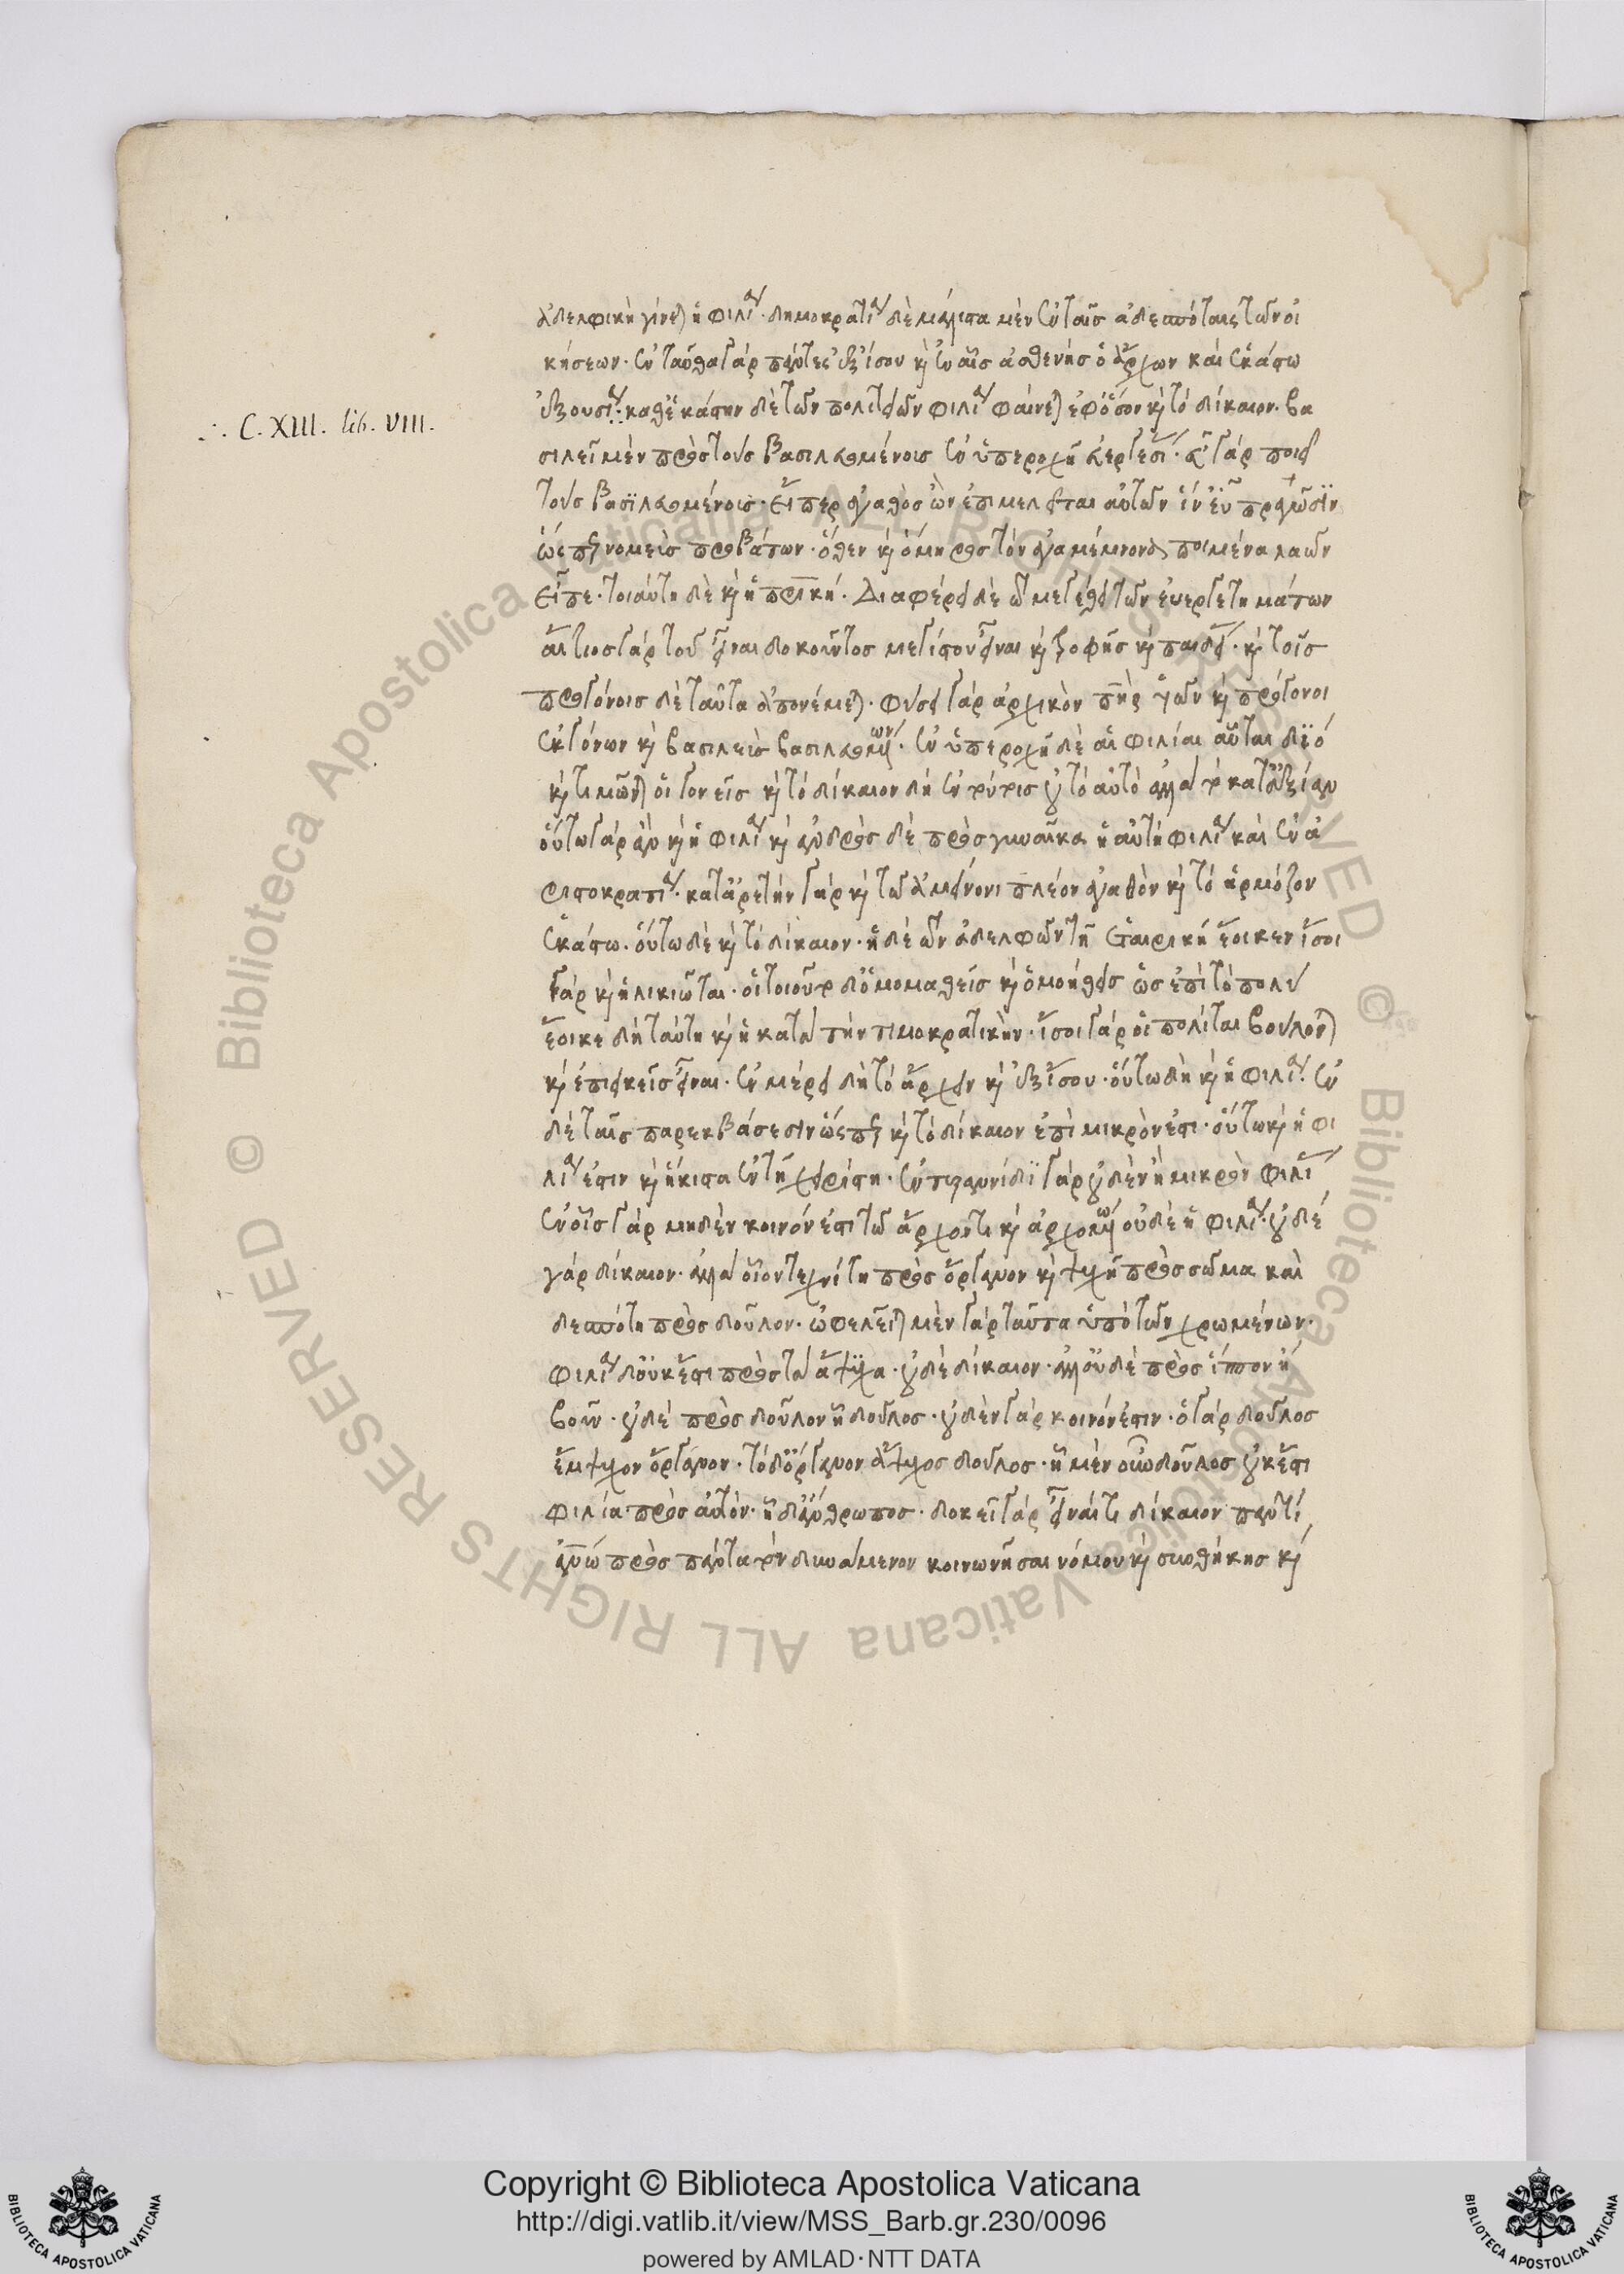 ἀδελφικὴ γίνεται ἡ φιλία. δημοκρατία δὲ μάλιστα μὲν ἐν ταῖς ἀδεσπότοις τῶν οἰ
κήσεων. ἐνταῦθα γὰρ πάντες ἐξίσου καὶ ἐν αἷς ἀσθενὴς ὁ ἄρχων καὶ ἑκάστω
ἐξουσία. καθ' ἑκάστην δὲ τῶν πολιτειῶν φιλία φαίνεται ἐφόσον καὶ τὸ δίκαιον. βα
∴ C. XIII. lib. VIII.
σιλεῖ μὲν πρὸς τοὺς βασιλευομένους ἐν ὑπεροχῆ εὐεργεσίας. εὖ γὰρ ποιεῖ
τοὺς βασιλευομένους. εἴπερ ἀγαθὸς ὢν ἐπιμελεῖται αὐτῶν ἵν' εὖ πράττωσιν
ὥσπερ νομεὺς προβάτων. ὅθεν καὶ ὅμηρος τὸν ἀγαμέμνονα ποιμένα λαῶν
εἶπε. τοιαύτη δὲ καὶ ἡ πατρική. Διαφέρει δὲ τῶ μεγέθει τῶν εὐεργετημάτων
αἴτιος γὰρ τοῦ εἶναι δοκοῦντος μεγίστου εἶναι καὶ τροφῆς καὶ παιδείας. καὶ τοῖς
προγόνοις δὲ ταῦτα ἀπονέμεται. φύσει γὰρ ἀρχικὸν πατὴρ υἱῶν καὶ πρόγονοι
ἐκγόνων καὶ βασιλεὺς βασιλευομένων. ἐν ὑπεροχῆ δὲ αἱ φιλίαι αὗται διὸ
καὶ τιμῶνται οἱ γονεῖς καὶ τὸ δίκαιον δὴ ἐν τούτοις οὐ τὸ αὐτὸ ἀλλὰ τὸ κατ' ἀξίαν
οὕτω γὰρ ἂν καὶ ἡ φιλία καὶ ἀνδρὸς δὲ πρὸς γυναῖκα ἡ αὐτὴ φιλία καὶ ἐν ἀ
ριστοκρατία. κατ' ἀρετὴν γὰρ καὶ τῶ ἀμείνονι πλέον ἀγαθὸν καὶ τὸ ἁρμόζον
ἑκάστω. οὕτω δὲ καὶ τὸ δίκαιον. ἡ δὲ τῶν ἀδελφῶν τῆ ἑταιρικῆ ἔοικεν ἴσοι
γὰρ καὶ ἡλικιῶται. οἱ τοιοῦτοι δ' ὁμομαθεῖς καὶ ὁμοήθεις ὡς ἐπὶ τὸ πολύ
ἔοικε δὴ ταύτη καὶ ἡ κατὰ τὴν τιμοκρατικήν. ἴσοι γὰρ οἱ πολῖται βούλονται
καὶ ἐπιεικεῖς εἶναι. ἐν μέρει δὴ τὸ ἄρχειν καὶ ἐξίσου. οὕτω δὴ καὶ ἡ φιλία. ἐν
δὲ ταῖς παρεκβάσεσιν ὥσπερ καὶ τὸ δίκαιον ἐπὶ μικρόν ἐστι. οὕτω καὶ ἡ φι
λία ἐστιν καὶ ἥκιστα ἐν τῆ χειρίστη. ἐν τυραννίδι γὰρ οὐδὲν ἢ μικρὸν φιλίας
ἐν οἷς γὰρ μηδὲν κοινόν ἐστι τῶ ἄρχοντι καὶ ἀρχομένω οὐδὲ ἡ φιλία. οὐδὲ
γὰρ δίκαιον. ἀλλὰ οἷον τεχνίτη πρὸς ὄργανον καὶ ψυχῆ πρὸς σῶμα καὶ
δεσπότη πρὸς δοῦλον. ὠφελεῖται μὲν γὰρ ταῦτα ὑπὸ τῶν χρωμένων.
φιλία δ' οὐκ ἔστι πρὸς τὰ ἄψυχα. οὐδὲ δίκαιον. ἀλλ' οὐδὲ πρὸς ἵππον ἢ
βοῦν. οὐδὲ πρὸς δοῦλον ἧ δοῦλος. οὐδὲν γὰρ κοινόν ἐστιν. ὁ γὰρ δοῦλος
ἔμψυχον ὄργανον. τὸ δ' ὄργανον ἄψυχος δοῦλος. ἧ μὲν οὖν δοῦλος οὐκ ἔστι
φιλία πρὸς αὐτόν. ἧ δ' ἄνθρωπος. δοκεῖ γὰρ εἶναί τι δίκαιον παντὶ
ἀνθρώπω πρὸς πάντα τὸν δυνάμενον κοινωνῆσαι νόμου καὶ συνθήκης καὶ
Copyright © Biblioteca Apostolica Vaticana
http://digi.vatlib.it/view/MSS_Barb.gr.230/0096
powered by AMLAD·NTT DATA